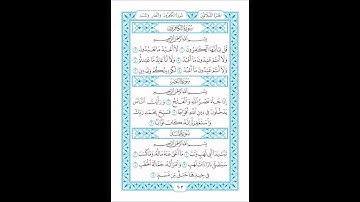 الجزء الثلاثون
سورة الكافرون والنصر والمسد
سورة الكافرون
بسم الله الرحمن الرحيم
قُلْ يَٰٓأَيُّهَا ٱلْكَٰفِرُونَ ١ لَآ أَعْبُدُ مَا تَعْبُدُونَ ٢
وَلَآ أَنتُمْ عَٰبِدُونَ مَآ أَعْبُدُ ٣ وَلَآ أَنَا۠ عَابِدٌ مَّا عَبَدتُّمْ ٤
وَلَآ أَنتُمْ عَٰبِدُونَ مَآ أَعْبُدُ ٥ لَكُمْ دِينُكُمْ وَلِىَ دِينِ ٦
سورة النصر
بسم الله الرحمن الرحيم
إِذَا جَآءَ نَصْرُ ٱللَّهِ وَٱلْفَتْحُ ١ وَرَأَيْتَ ٱلنَّاسَ
يَدْخُلُونَ فِى دِينِ ٱللَّهِ أَفْوَاجًا ٢ فَسَبِّحْ بِحَمْدِ رَبِّكَ
وَٱسْتَغْفِرْهُ إِنَّهُۥ كَانَ تَوَّابًۢا ٣
سورة المسد
بسم الله الرحمن الرحيم
تَبَّتْ يَدَآ أَبِى لَهَبٍ وَتَبَّ ١ مَآ أَغْنَىٰ عَنْهُ مَالُهُۥ وَمَا كَسَبَ ٢
سَيَصْلَىٰ نَارًا ذَاتَ لَهَبٍ ٣ وَٱمْرَأَتُهُۥ حَمَّالَةَ ٱلْحَطَبِ ٤
فِى جِيدِهَا حَبْلٌ مِّن مَّسَدٍۭ ٥